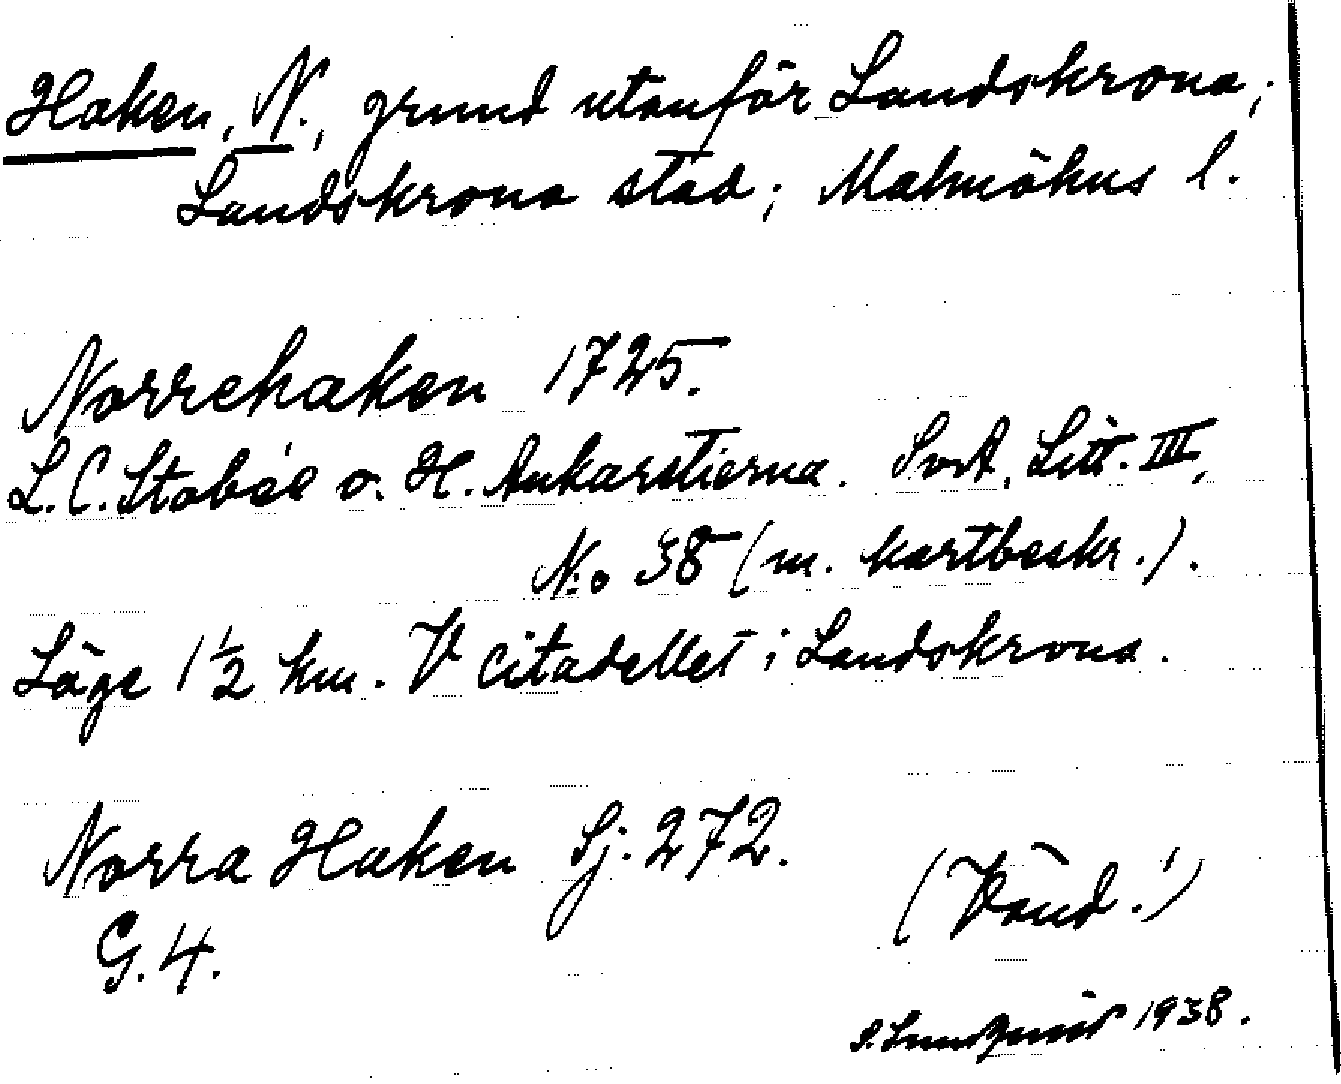 Haken, N., grund utanför Landskrona;
Landskrona stad; Malmöhus l.
Norrehaken 1725.
L.C. Stobée o. H. Ankarstierna. SvA, Litt. III,
N:o 38 (m. kartbeskr.).
Läge 1 1/2 km. V citadellet i Landskrona.
Norra Haken Sj. 272.
G. 4.
(Vänd!)
S. Lundquist 1938.